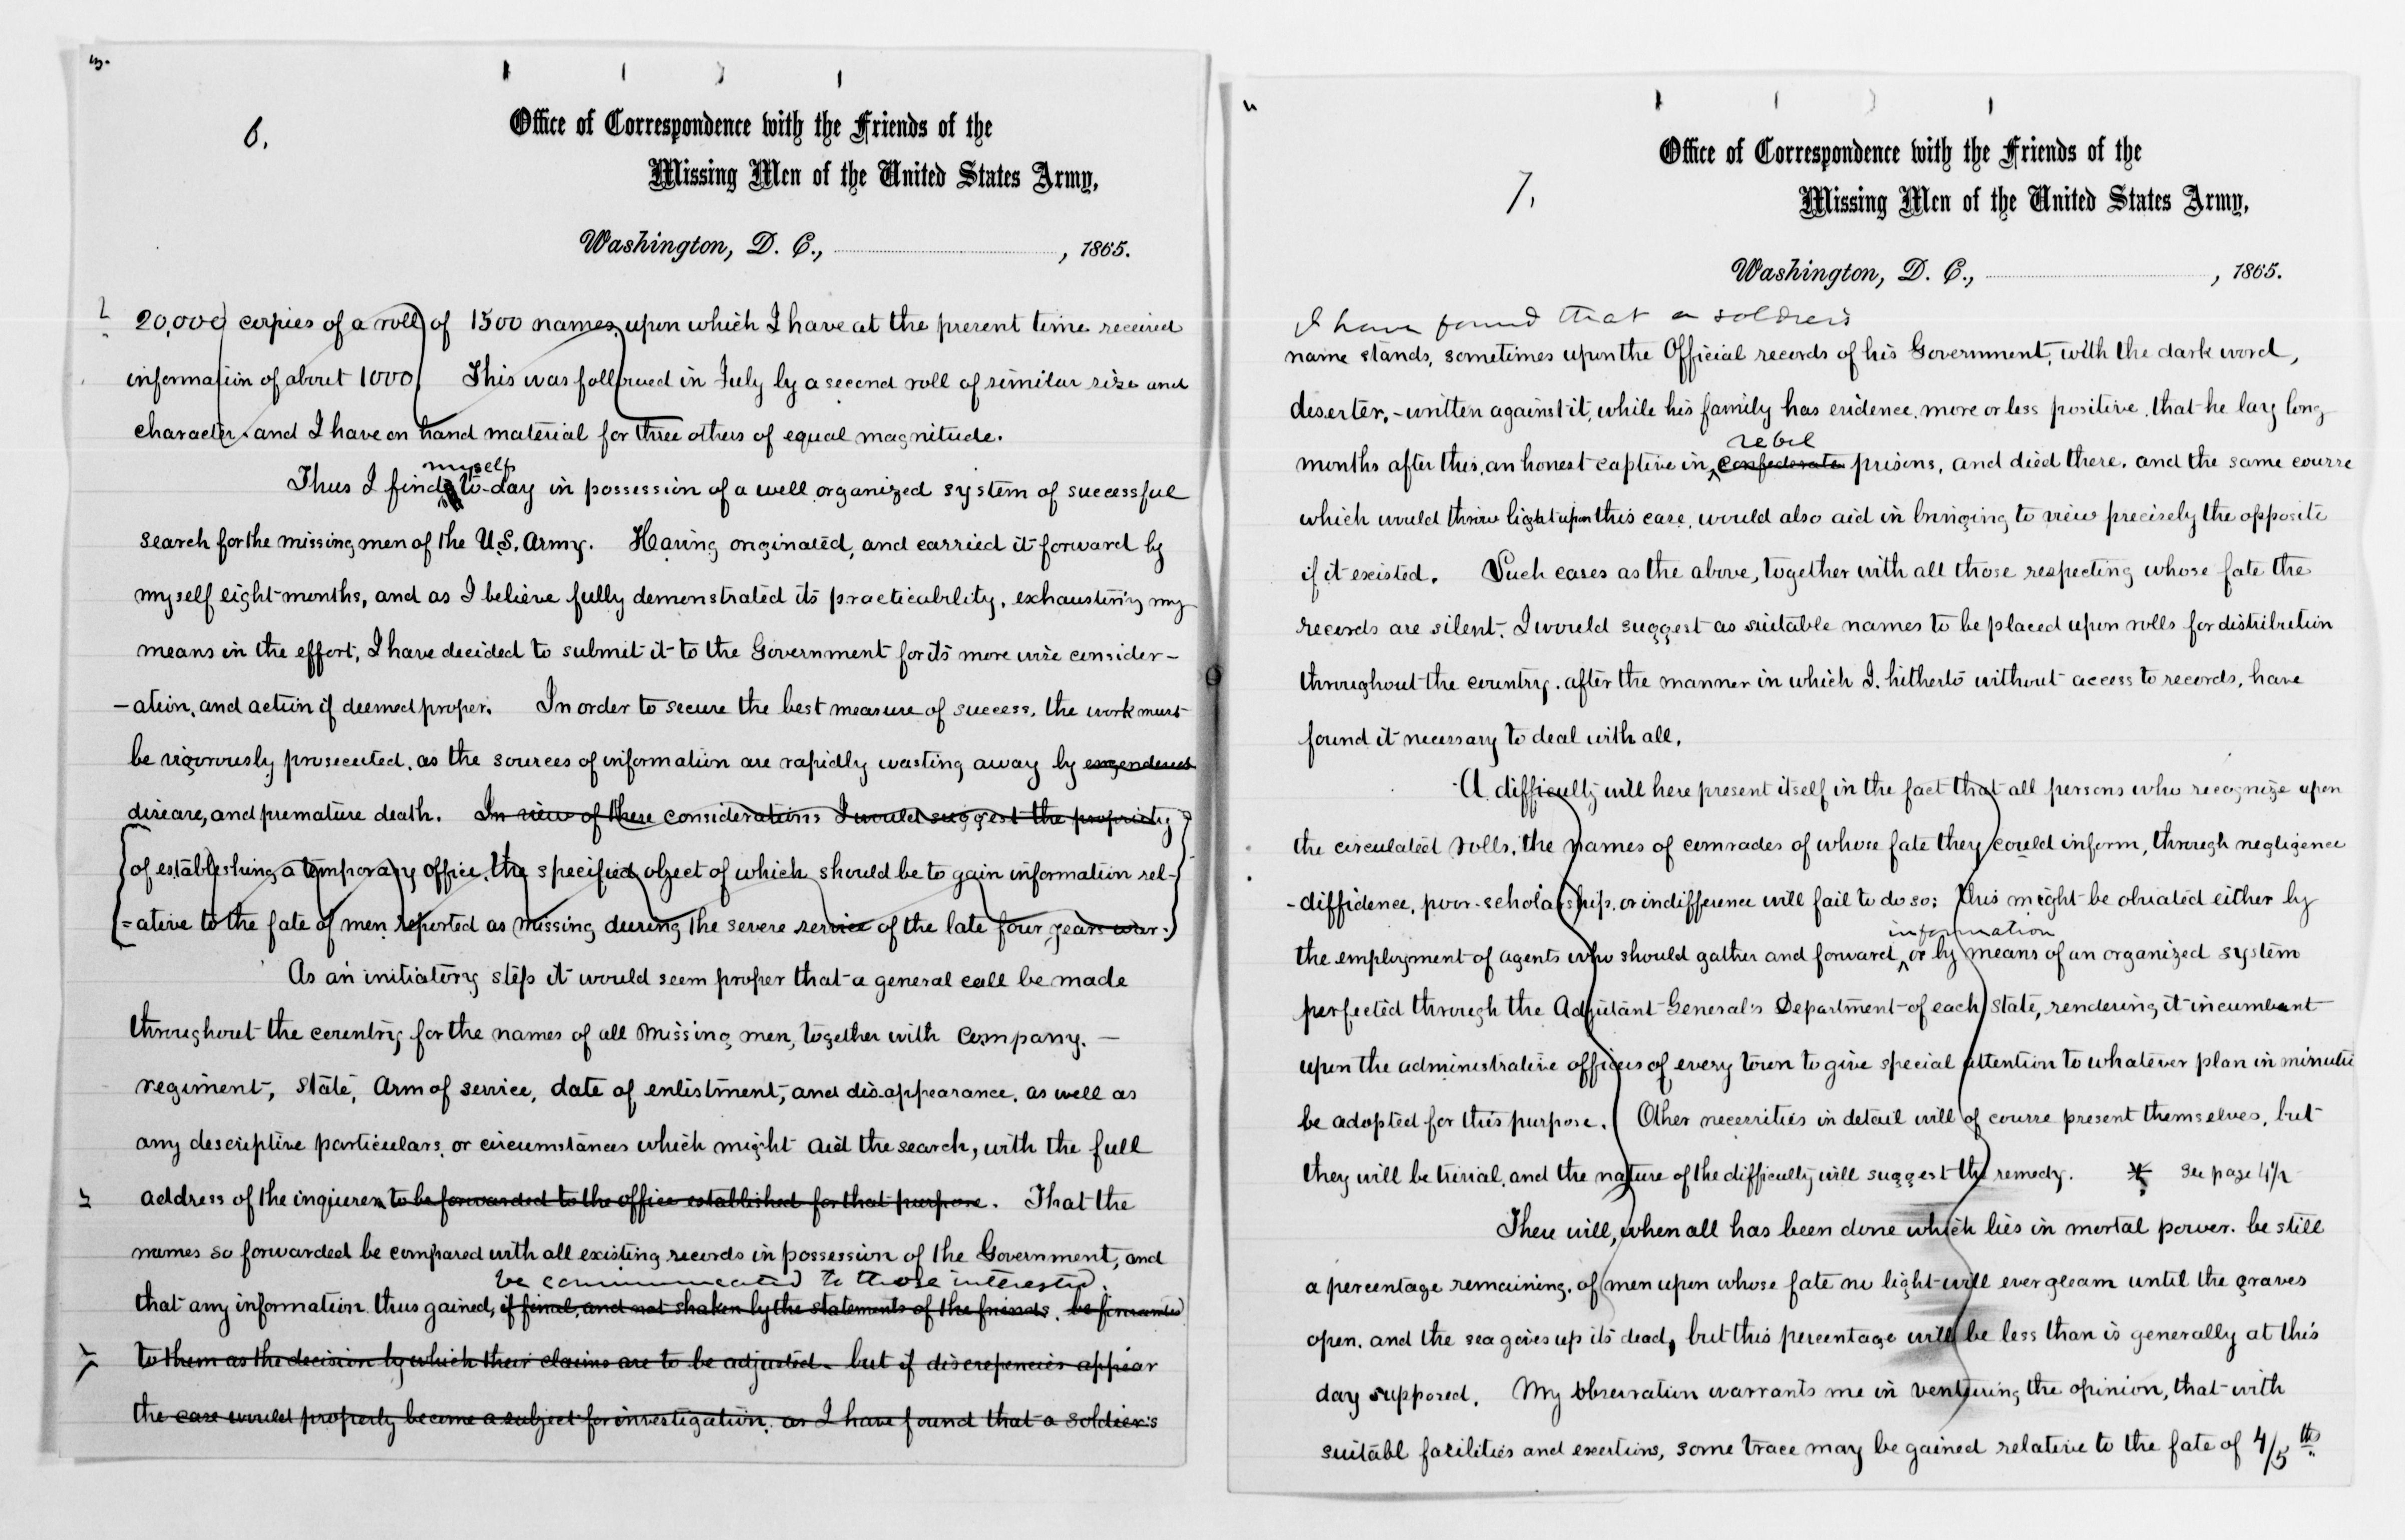 6.
Office of Correspondence with the Friends of the
Missing Men of the United States Army,
Washington, D. C., , 1865.
20,000 copies of a roll of 1500 names, upon which I have at the present time received
information of about 1000. This was followed in July by a second roll of similar size and
character, and I have on hand material for three others of equal magnitude.
myself
Thus I find to-day in possession of a well organized system of successful
search for the missing men of the U.S. Army. Having originated, and carried it forward by
myself eight months, and as I believe fully demonstrated its practicability, exhausting my
means in the effort, I have decided to submit it to the Government for its more wise consider-
-ation, and action if deemed proper. In order to secure the best measure of success, the work must
be vigorously prosecuted, as the sources of information are rapidly wasting away by engendered
disease, and premature death. In view of these considerations I would suggest the propriety
of establishing a temporary office, the specified object of which should be to gain information rel-
=ative to the fate of men reported as missing during the severe service of the late four years war.
As an initiatory step it would seem proper that a general call be made
throughout the country for the names of all missing men, together with company. —
regiment, State, Arm of service, date of enlistment, and disappearance, as well as
any descriptive particulars, or circumstances which might aid the search, with the full
address of the inquirer to be forwarded to the office established for that purpose. That the
names so forwarded be compared with all existing records in possession of the Government, and
be communicated to those interested.
that any information thus gained, if final, and not shaken by the statements of the friends, be forwarded
to them as the decision by which their claims are to be adjusted. but if discrepencies appear
the case would properly become a subject for investigation. as I have found that a soldier's
7.
Office of Correspondence with the Friends of the
Missing Men of the United States Army,
Washington, D. C., , 1865.
I have found that a soldiers
name stands, sometimes upon the Official records of his Government, with the dark word,
deserter, - written against it, while his family has evidence, more or less positive, that he lay long
rebel
months after this, an honest captive in confederate prisons, and died there. and the same course
which would throw light upon this case, would also aid in bringing to view precisely the opposite
if it existed. Such cases as the above, together with all those respecting whose fate the
records are silent, I would suggest as suitable names to be placed upon rolls for distribution
throughout the country, after the manner in which I, hitherto without access to records, have
found it necessary to deal with all.
A difficulty will here present itself in the fact that all persons who recognize upon
the circulated rolls, the names of comrades of whose fate they could inform, through negligence
- diffidence, poor-scholarship, or indifference will fail to do so; this might be obviated either by
information
the employment of agents who should gather and forward, or by means of an organized system
perfected through the Adjutant General's Department of each State, rendering it incumbent
upon the administrative officers of every town to give special attention to whatever plan in minutie
be adopted for this purpose. Other necessities in detail will of course present themselves, but
they will be trivial, and the nature of the difficulty will suggest the remedy. * See page 4½
There will, when all has been done which lies in mortal power, be still
a percentage remaining, of men upon whose fate no light will ever gleam until the graves
open, and the sea gives up its dead, but this percentage will be less than is generally at this
day supposed. My observation warrants me in venturing the opinion, that with
suitabl facilities and exertions, some trace may be gained relative to the fate of 4/5ths